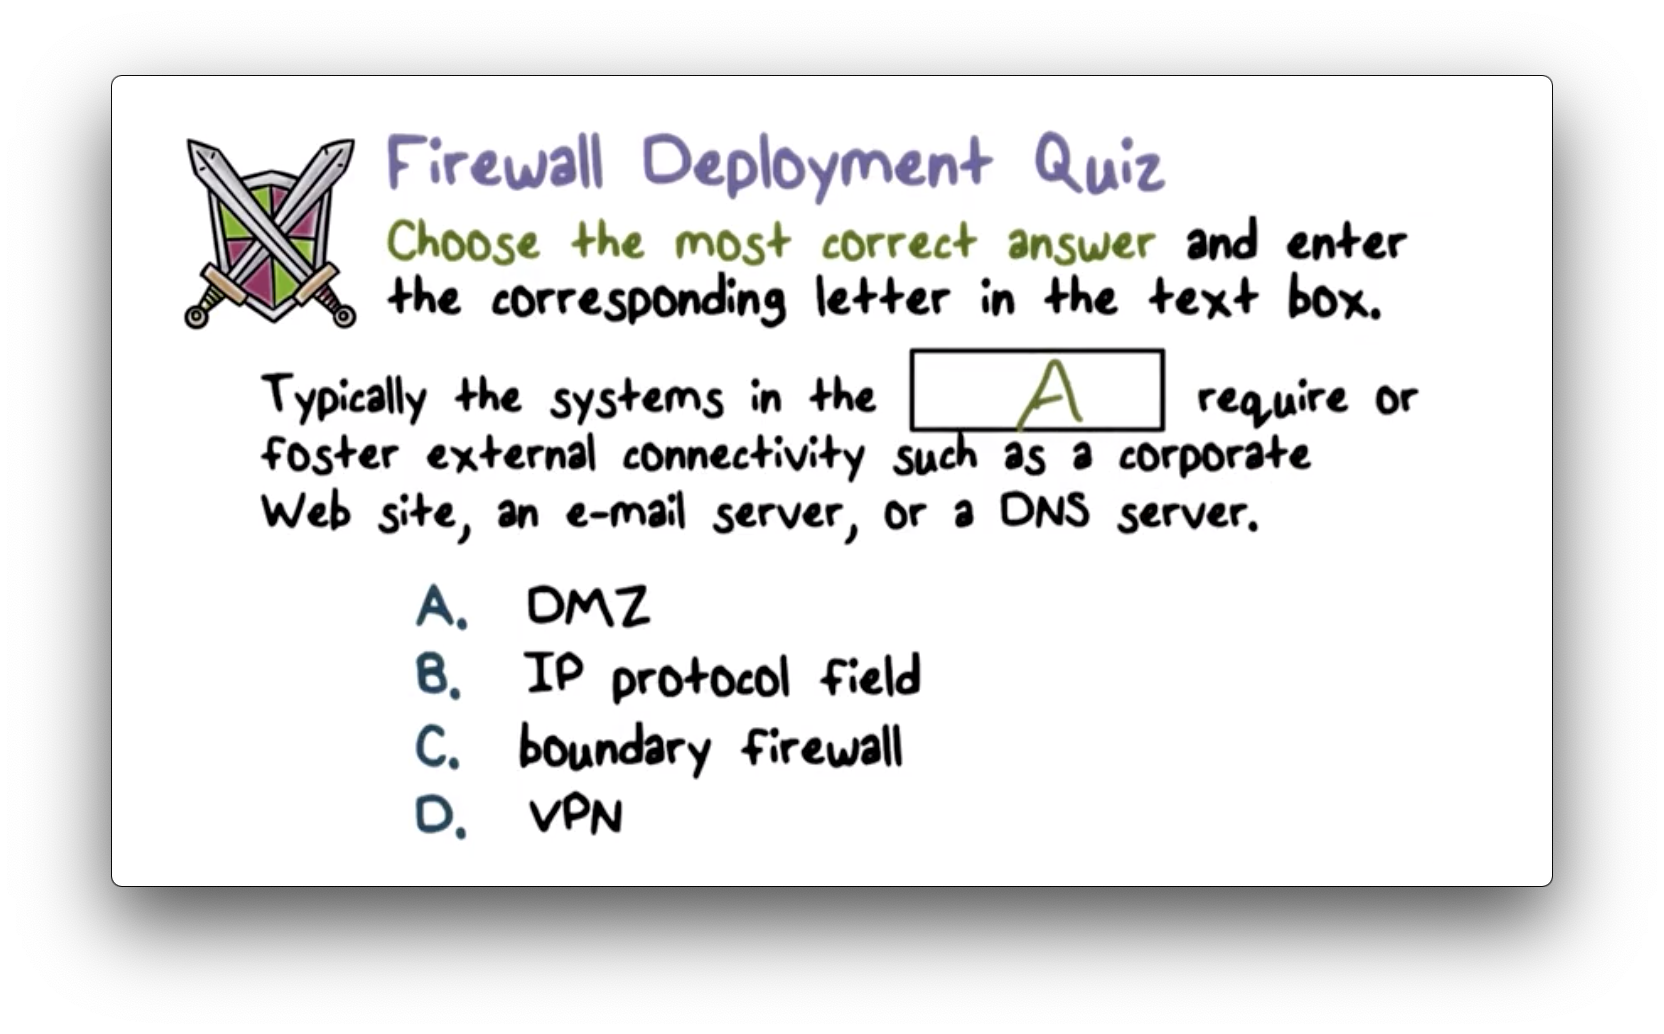 Firewall Deployment Quiz
Choose the most correct answer and enter
the corresponding letter in the text box.
Typically the systems in the A require or
foster external connectivity such as a corporate
Web site, an e-mail server, or a DNS server.
A. DMZ
B. IP protocol field
C. boundary firewall
D. VPN